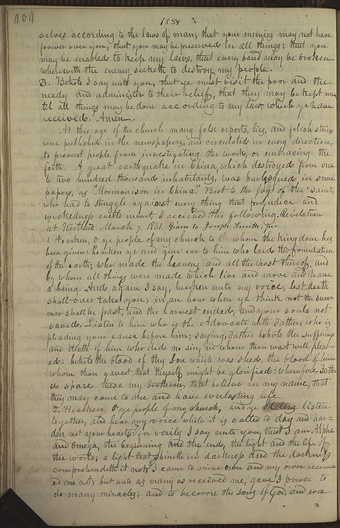 104
1831
selves according to the laws of man, that your enemies may not have
power over you; that you may be preserved in all things; that you
may be enabled to keep my laws, that every band may be broken
wherewith the enemy seeketh to destroy my people.
8. Behold I say unto you, that ye must visit the poor and the
needy and administer to their relief, that they may be kept un-
til all things may be done according to my law, which ye have
received. Amen.
At this age of the church many false reports, lies, and foolish stories
were published in the newspapers, and circulated in every direction,
to prevent people from investigating the work, or embracing the
faith. A great earthquake in China, which destroyed from one
to two hundred thousand inhabitants, was burlesqued in some
papers, as "Mormonism in China." But to the joy of the saints,
who had to struggle against every thing that prejudice and
wickedness could invent I received the following, Revelation
at Kirtland March 7, 1831. Given to Joseph Smith, Jr.
1 Hearken, O ye people of my church to whom the kingdom has
been given: hearken ye and give ear to him who laid the foundation
of the earth; who made the heavens and all the host thereof, and
by whom all things were made which live and move and have
a being. And again I say, hearken unto my voice, lest death
shall overtake you; in an hour when ye think not the sum
mer shall be past, and the harvest ended, and your souls not
saved. Listen to him who is the Advocate with the Father, who is
pleading your cause before him; saying, Father, behold the suffering
and death of him who did no sin, in whom thou wast well pleas-
ed: behold the blood of thy Son which was shed, the blood of him
whom thou gavest that thyself might be glorified: wherefore Father
spare these my brethren, that believe on my name, that
they may come to me and have everlasting life.
2. Hearken, O ye people of my church, and ye Elders listen
together, and hear my voice while it is called to day and har-
den not your hearts; for verily I say unto you, that I am Alpha
and Omega, the beginning and the end, the light and the life of
the world, a light that shineth in darkness and the darkness
comprehendeth it not: I came to mine own and my own received
me not; but unto as many as received me, gave I power to
do many miracles, and to become the sons of God, and even